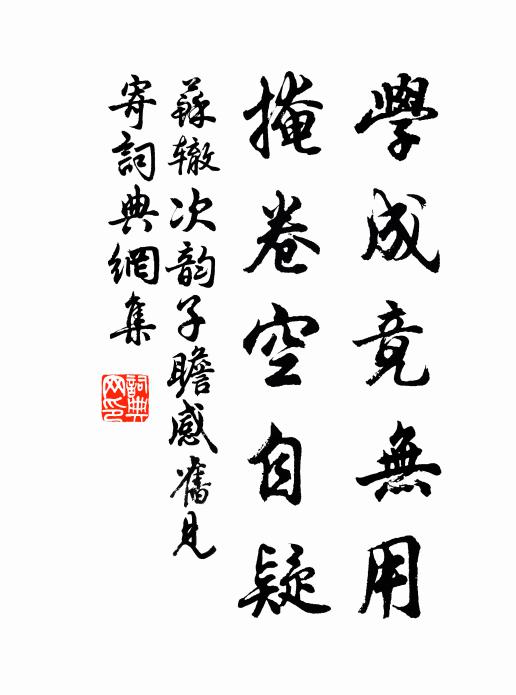 學成竟無用
掩卷空自疑
蘇辙次韵子瞻感舊見
寄詞典網集
詞典
网印